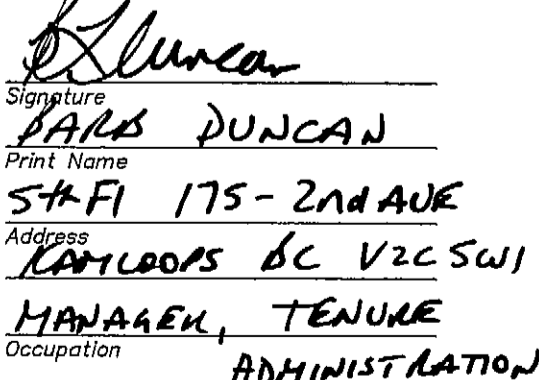 BLDuncan
Signature
BARB DUNCAN
Print Name
5th Fl 175 - 2nd AVE
Address
KAMLOOPS BC V2C 5W1
MANAGER, TENURE
Occupation
ADMINISTRATION